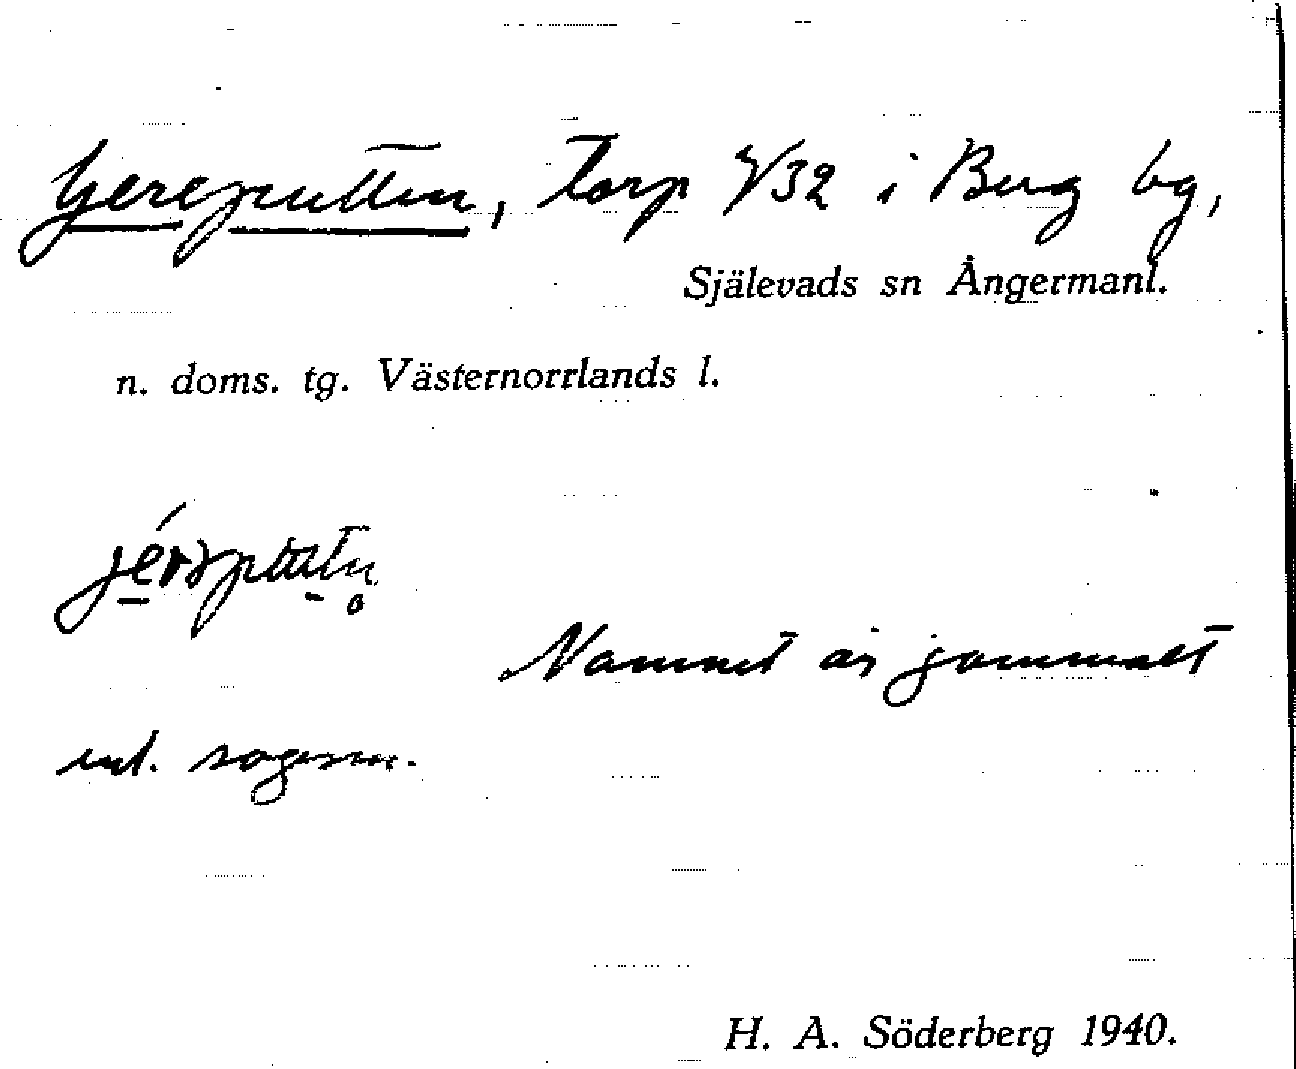 Gereputten, torp 4/32 i Berg bg,
Själevads sn Ångermanl.
n. doms. tg. Västernorrlands l.
Namnet är gammalt
enl. sagesm.
H. A. Söderberg 1940.